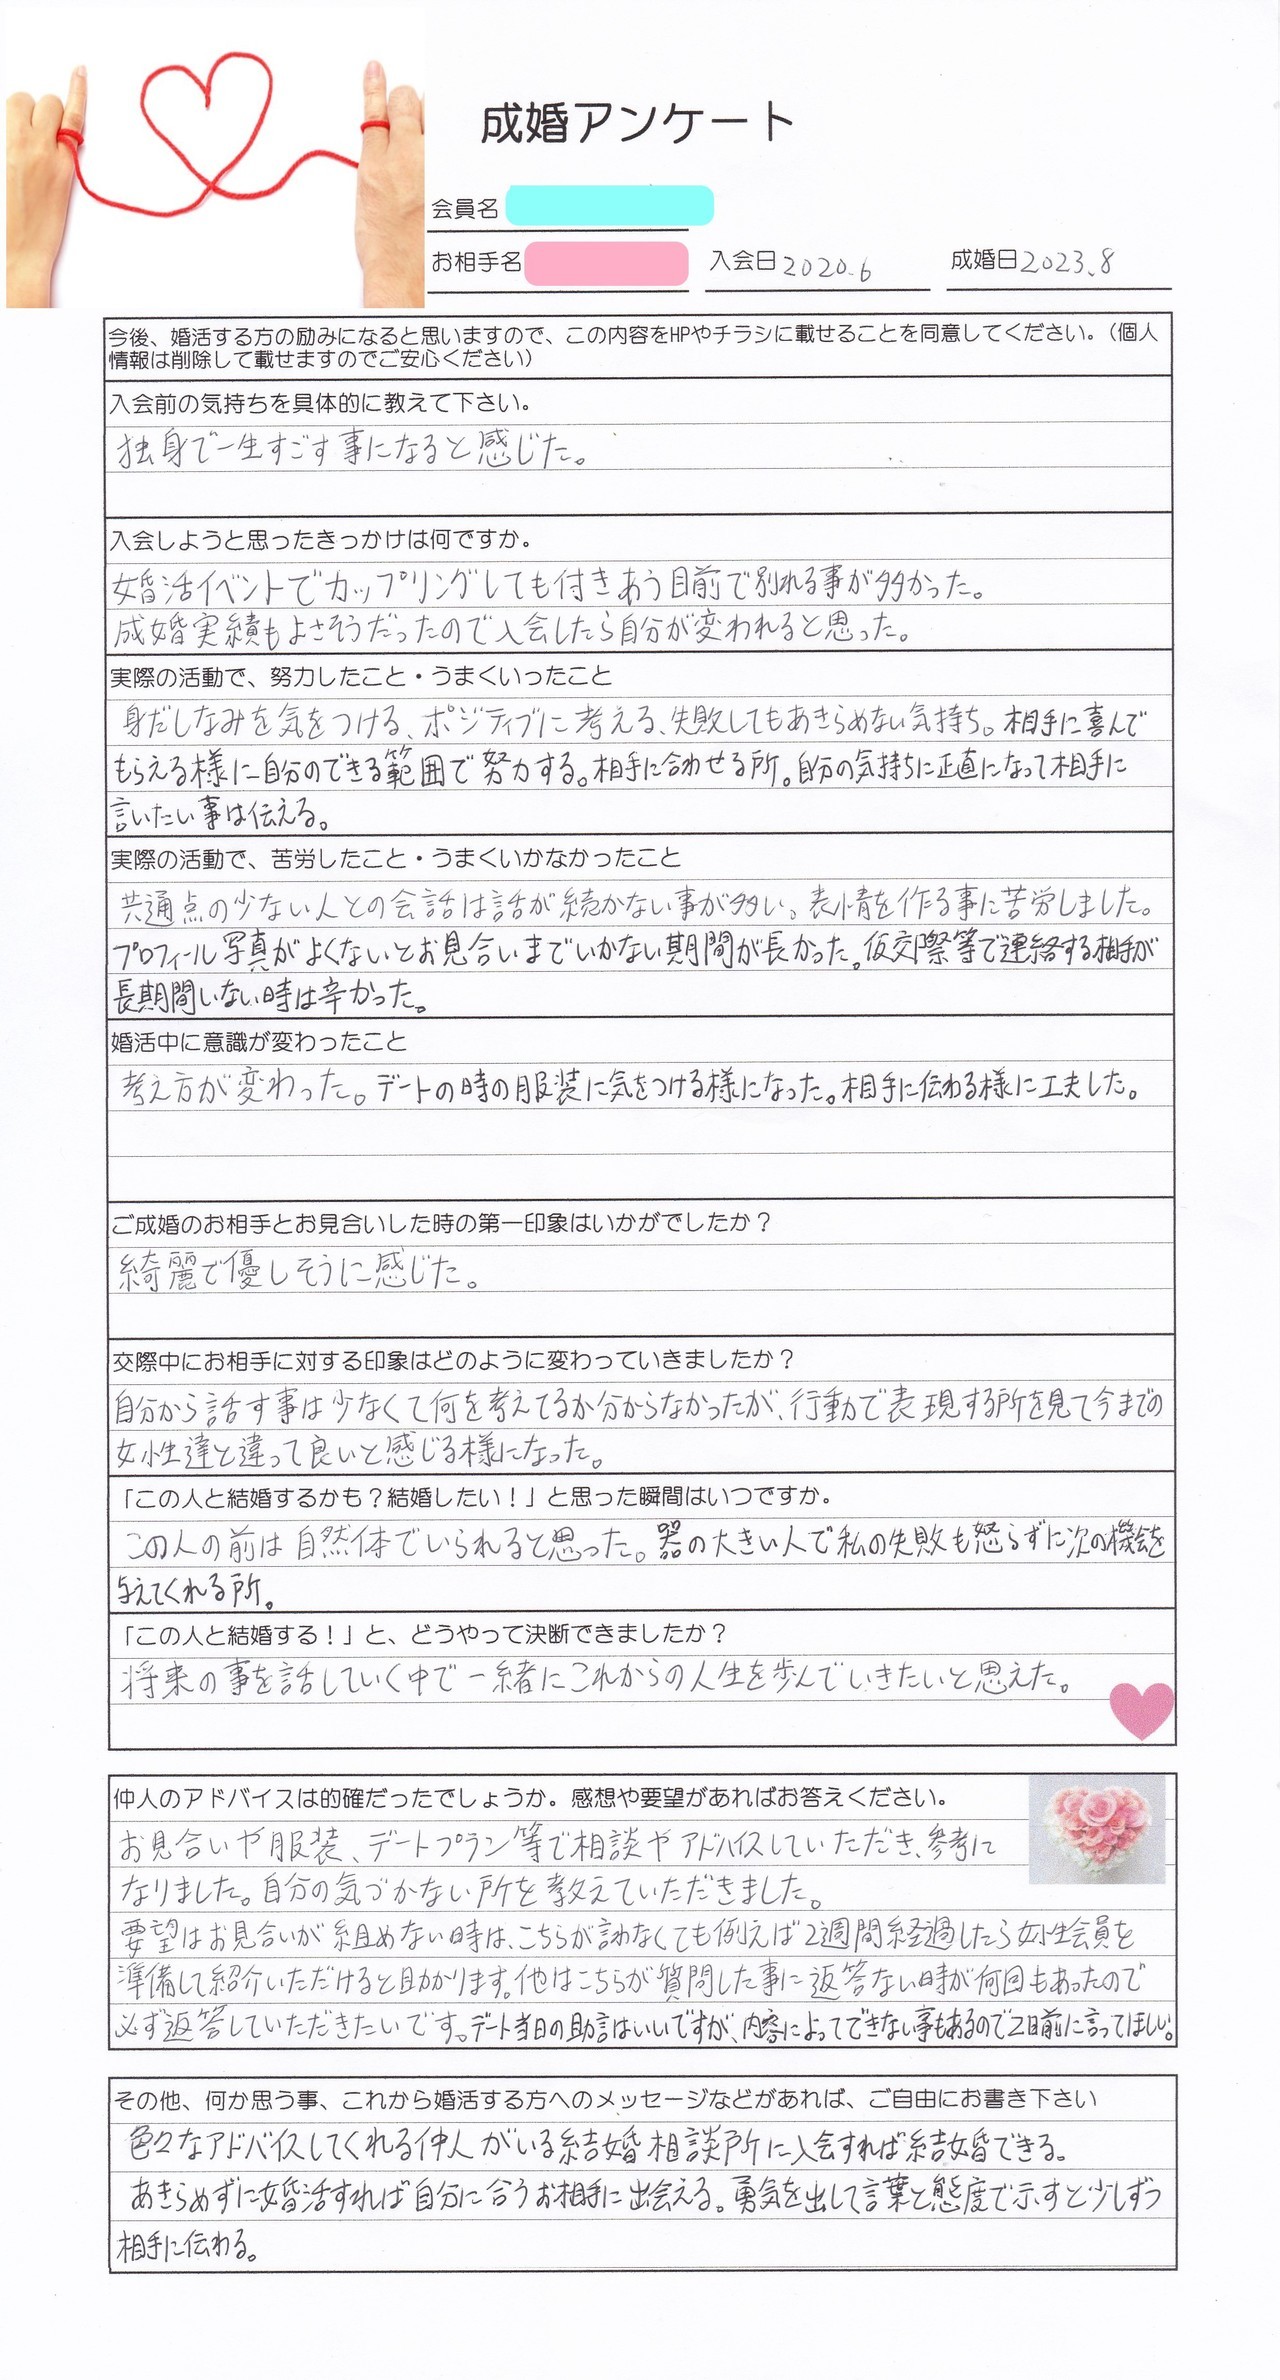 成婚アンケート
会員名
お相手名 入会日 2020.6 成婚日 2023.8
今後、婚活する方の励みになると思いますので、この内容をHPやチラシに載せることを同意してください。（個人
情報は削除して載せますのでご安心ください）
入会前の気持ちを具体的に教えて下さい。
独身で一生すごす事になると感じた。
入会しようと思ったきっかけは何ですか。
婚活イベントでカップリングしても付きあう目前で別れる事が多かった。
成婚実績もよさそうだったので入会したら自分が変われると思った。
実際の活動で、努力したこと・うまくいったこと
身だしなみを気をつける、ポジティブに考える、失敗してもあきらめない気持ち。相手に喜んで
もらえる様に自分のできる範囲で努力する。相手に合わせる所。自分の気持ちに正直になって相手に
言いたい事は伝える。
実際の活動で、苦労したこと・うまくいかなかったこと
共通点の少ない人との会話は話が続かない事が多い。表情を作る事に苦労しました。
プロフィール写真がよくないとお見合いまでいかない期間が長かった。仮交際等で連絡する相手が
長期間いない時は辛かった。
婚活中に意識が変わったこと
考え方が変わった。デートの時の服装に気をつける様になった。相手に伝わる様に工夫した。
ご成婚のお相手とお見合いした時の第一印象はいかがでしたか？
綺麗で優しそうに感じた。
交際中にお相手に対する印象はどのように変わっていきましたか？
自分から話す事は少なくて何を考えてるか分からなかったが、行動で表現する所を見て今までの
女性達と違って良いと感じる様になった。
「この人と結婚するかも？結婚したい！」と思った瞬間はいつですか。
この人の前は自然体でいられると思った。器の大きい人で私の失敗も怒らずに次の機会を
与えてくれる所。
「この人と結婚する！」と、どうやって決断できましたか？
将来の事を話していく中で一緒にこれからの人生を歩んでいきたいと思えた。
仲人のアドバイスは的確だったでしょうか。感想や要望があればお答えください。
お見合いや服装、デートプラン等で相談やアドバイスしていただき、参考に
なりました。自分の気づかない所を教えていただきました。
要望はお見合いが組めない時は、こちらが言わなくても例えば2週間経過したら女性会員を
準備して紹介いただけると助かります。他はこちらが質問した事に返答ない時が何回もあったので
必ず返答していただきたいです。デート当日の助言はいいですが、内容によってできない事もあるので2日前に言ってほしい。
その他、何か思う事、これから婚活する方へのメッセージなどがあれば、ご自由にお書き下さい
色々なアドバイスしてくれる仲人がいる結婚相談所に入会すれば結婚できる。
あきらめずに婚活すれば自分に合うお相手に出会える。勇気を出して言葉と態度で示すと少しずつ
相手に伝わる。